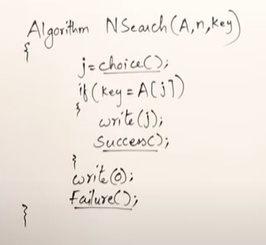 Algorithm NSearch(A,n,key)
{
j=choice();
if(key=A[j])
{
write(j);
Success();
}
write(0);
Failure();
}